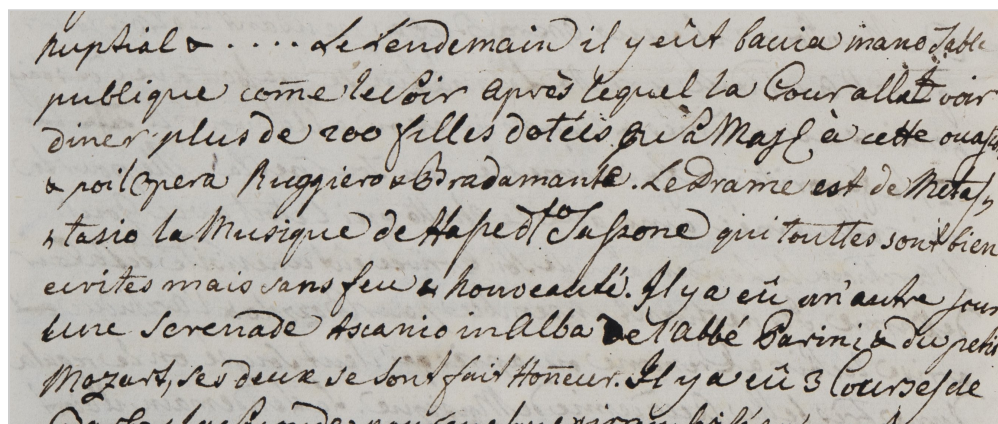 nuptial & .... Le Lendemain il y eût baccia mano Table
publique com̃e le Soir après lequel la Cour allat voir
diner plus de 200 filles dotées par Sa Maj. à cette occasion
& poi l'Opera Ruggiero & Bradamante. Le Drame est de Metas,,
,,tasio la Musique de Hasse d.to Sassone qui touttes sont bien
ecrites mais sans feu & Nouveauté. Il y a eû un' autre jour
une Serenade Ascanio in Alba de l'abbé Parini & du petit
Mozart, ses deux se sont fait Hoñeur. Il y a eû 3 Courses de